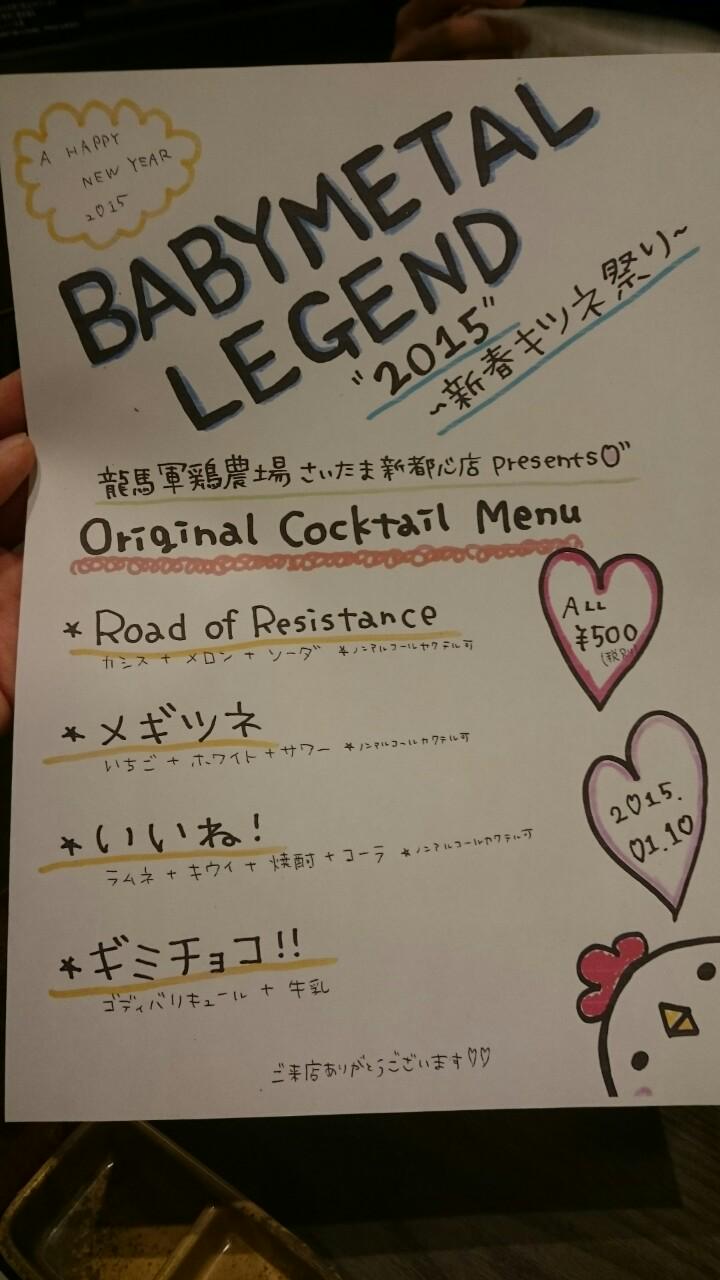 A HAPPY
NEW YEAR
2015
BABYMETAL
LEGEND
"2015"
~新春キツネ祭り~
龍馬軍鶏農場 さいたま新都心店 Presents♡"
Original Cocktail Menu
ALL
¥500
★ Road of Resistance
カシス + メロン + ソーダ ★ノンアルコールカクテル可
★ メギツネ
いちご + ホワイト + サワー ★ノンアルコールカクテル可
★ いいね!
ラムネ + キウイ + 焼酎 + コーラ ★ノンアルコールカクテル可
2015.
01.10
★ ギミチョコ!!
ゴディバリキュール + 牛乳
ご来店ありがとうございます♡♡